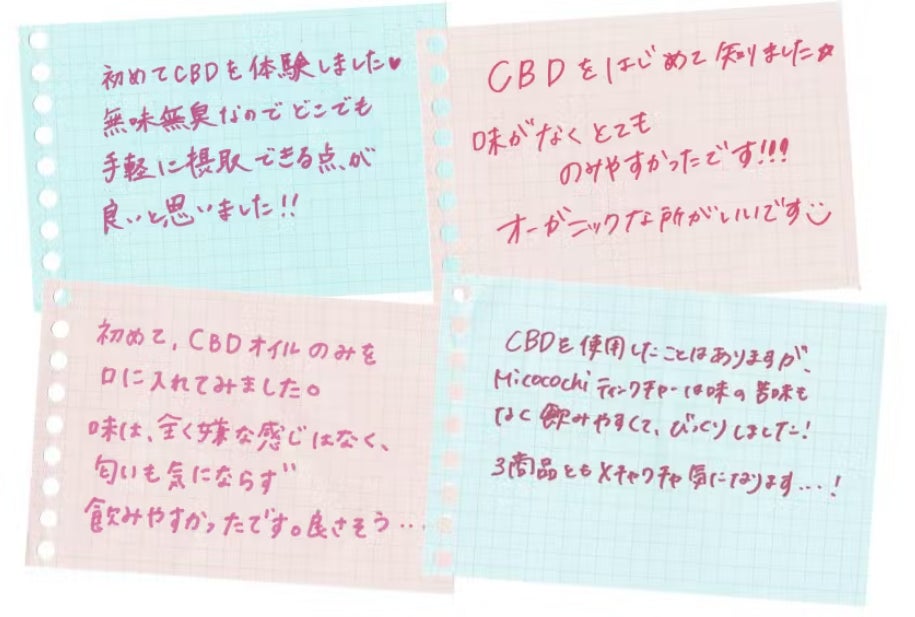 初めてCBDを体験しました♥
無味無臭なのでどこでも
手軽に摂取できる点が
良いと思いました!!
CBDをはじめて知りました☆
味がなくとても
のみやすかったです!!!
オーガニックな所がいいです
初めて、CBDオイルのみを
口に入れてみました。
味は、全く嫌な感じはなく、
匂いも気にならず
飲みやすかったです。良さそう…
CBDを使用したことはありますが、
Micocochiティンクチャーは味の苦味も
なく飲みやすくて、びっくりしました!
3商品ともメチャクチャ気になります…!